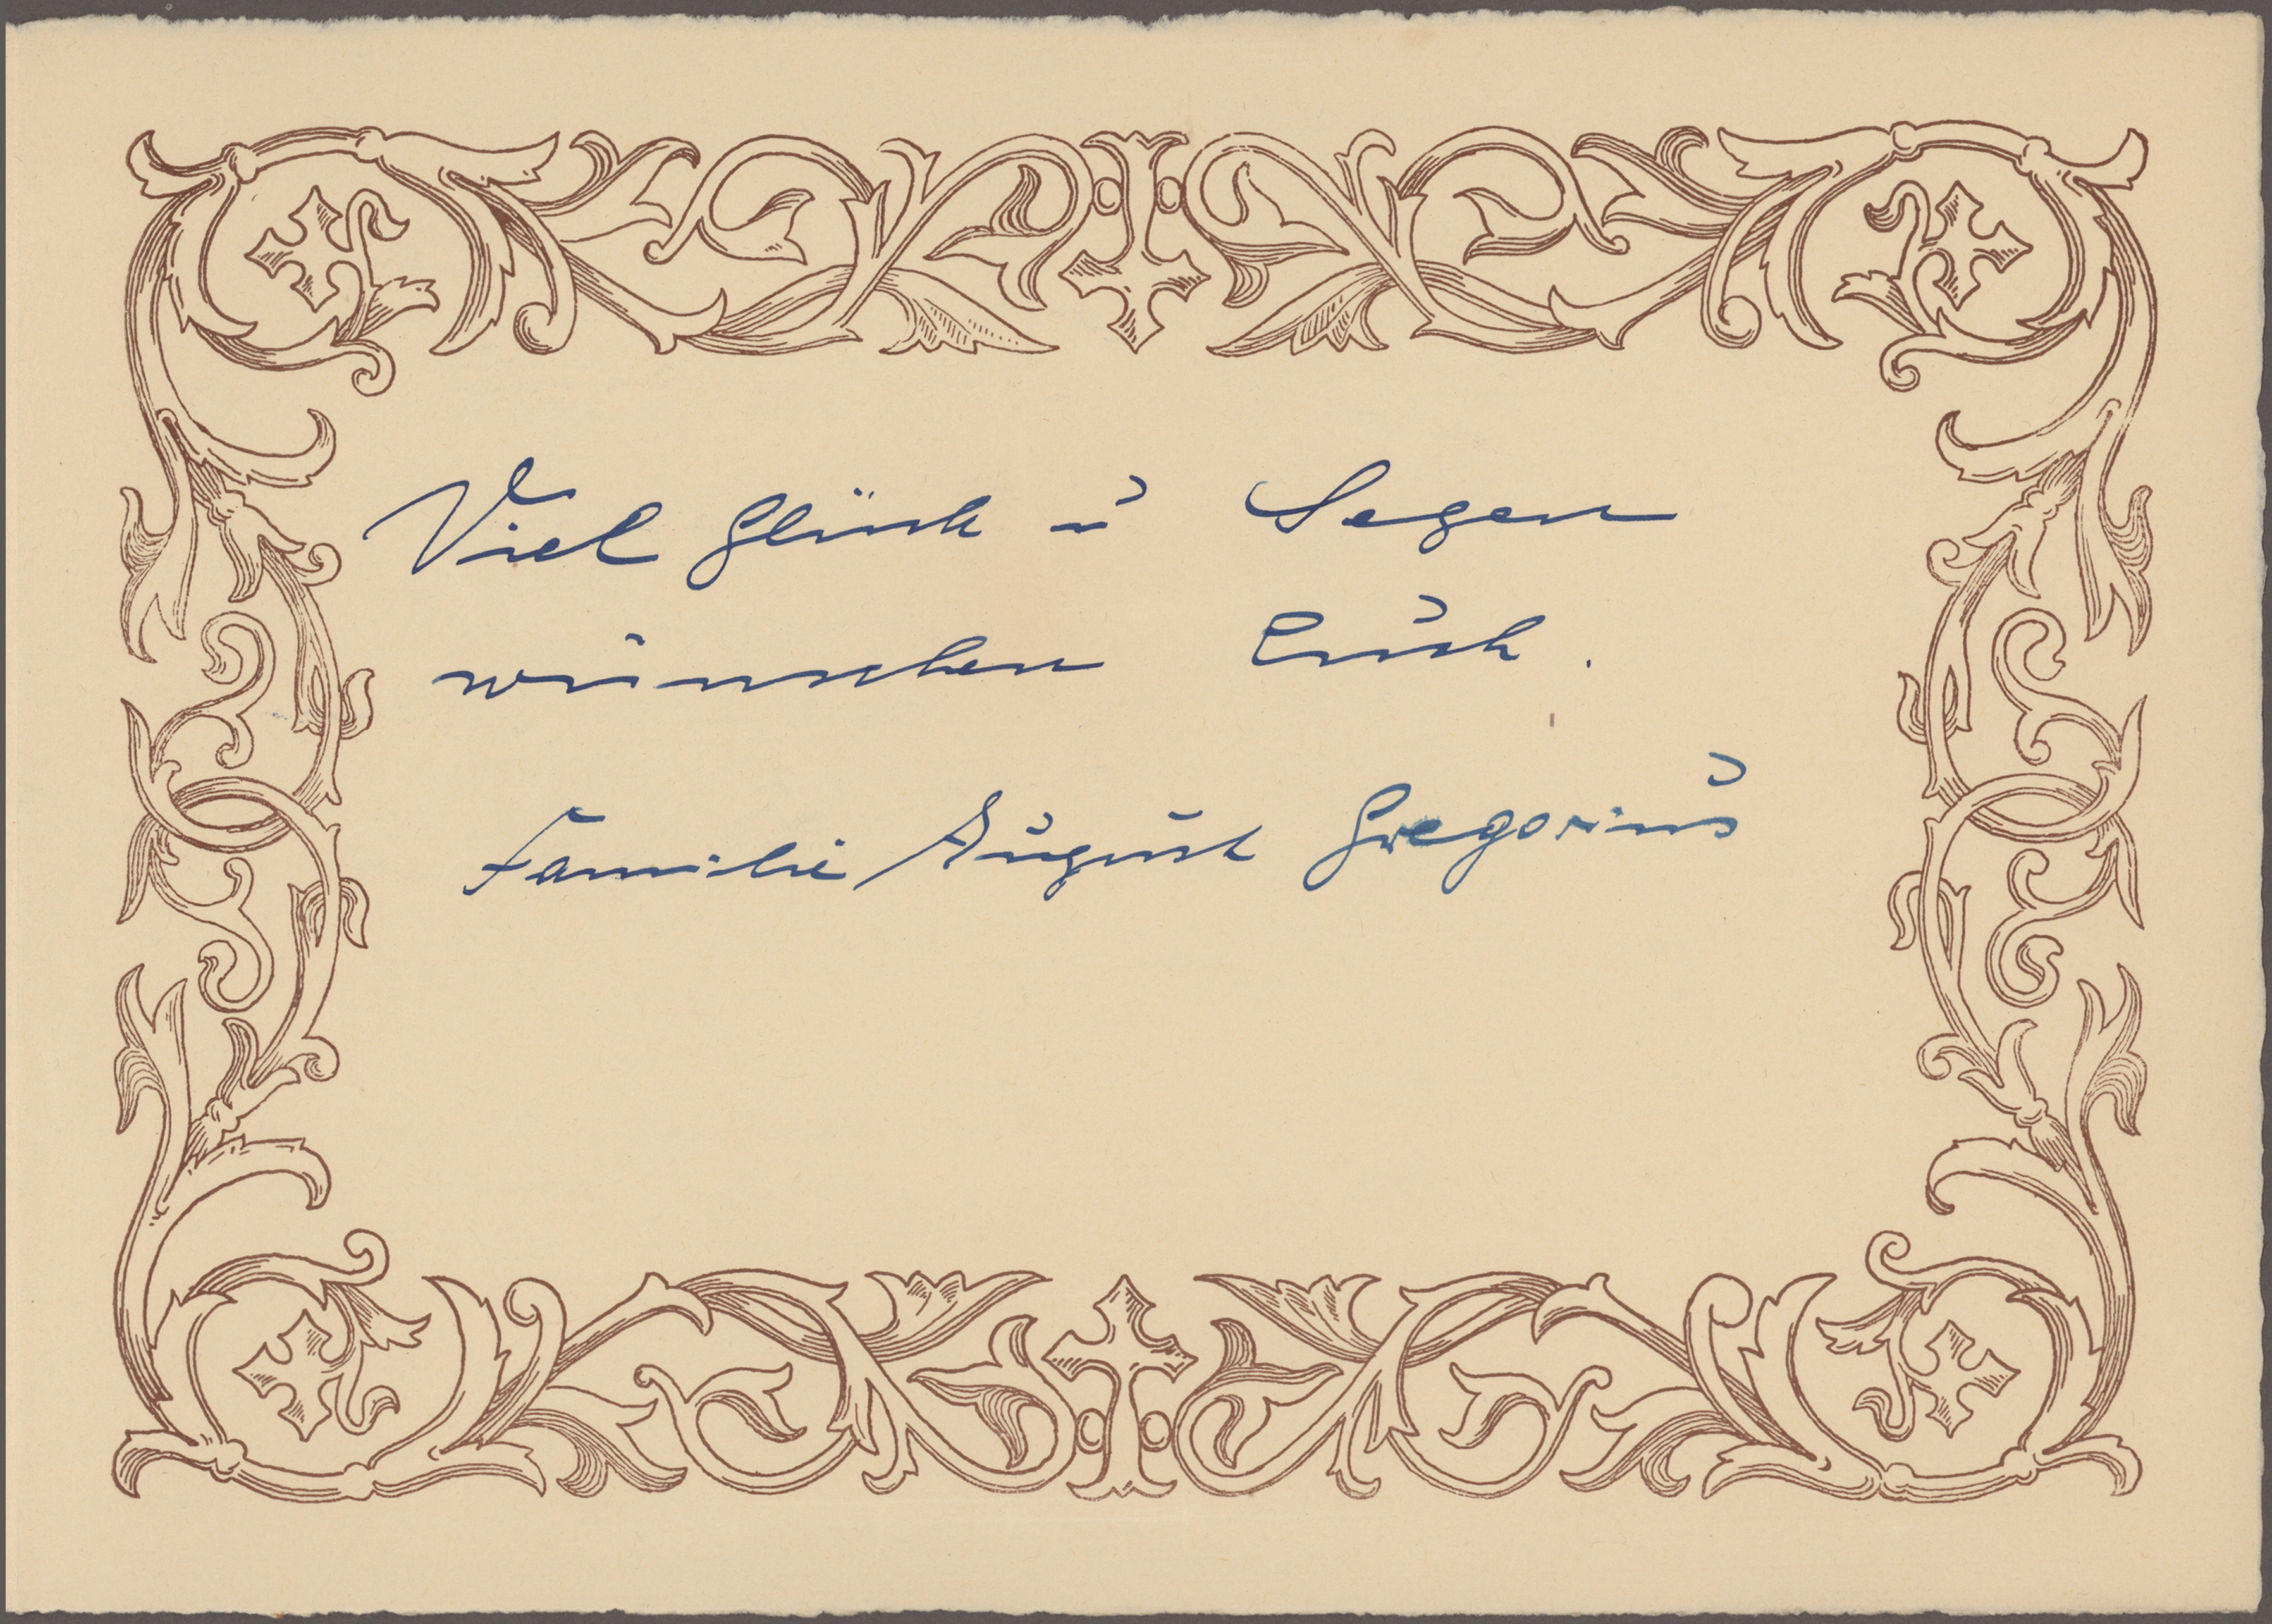 Viel Glück u Segen
wünschen Euch.
Familie August Gregorius